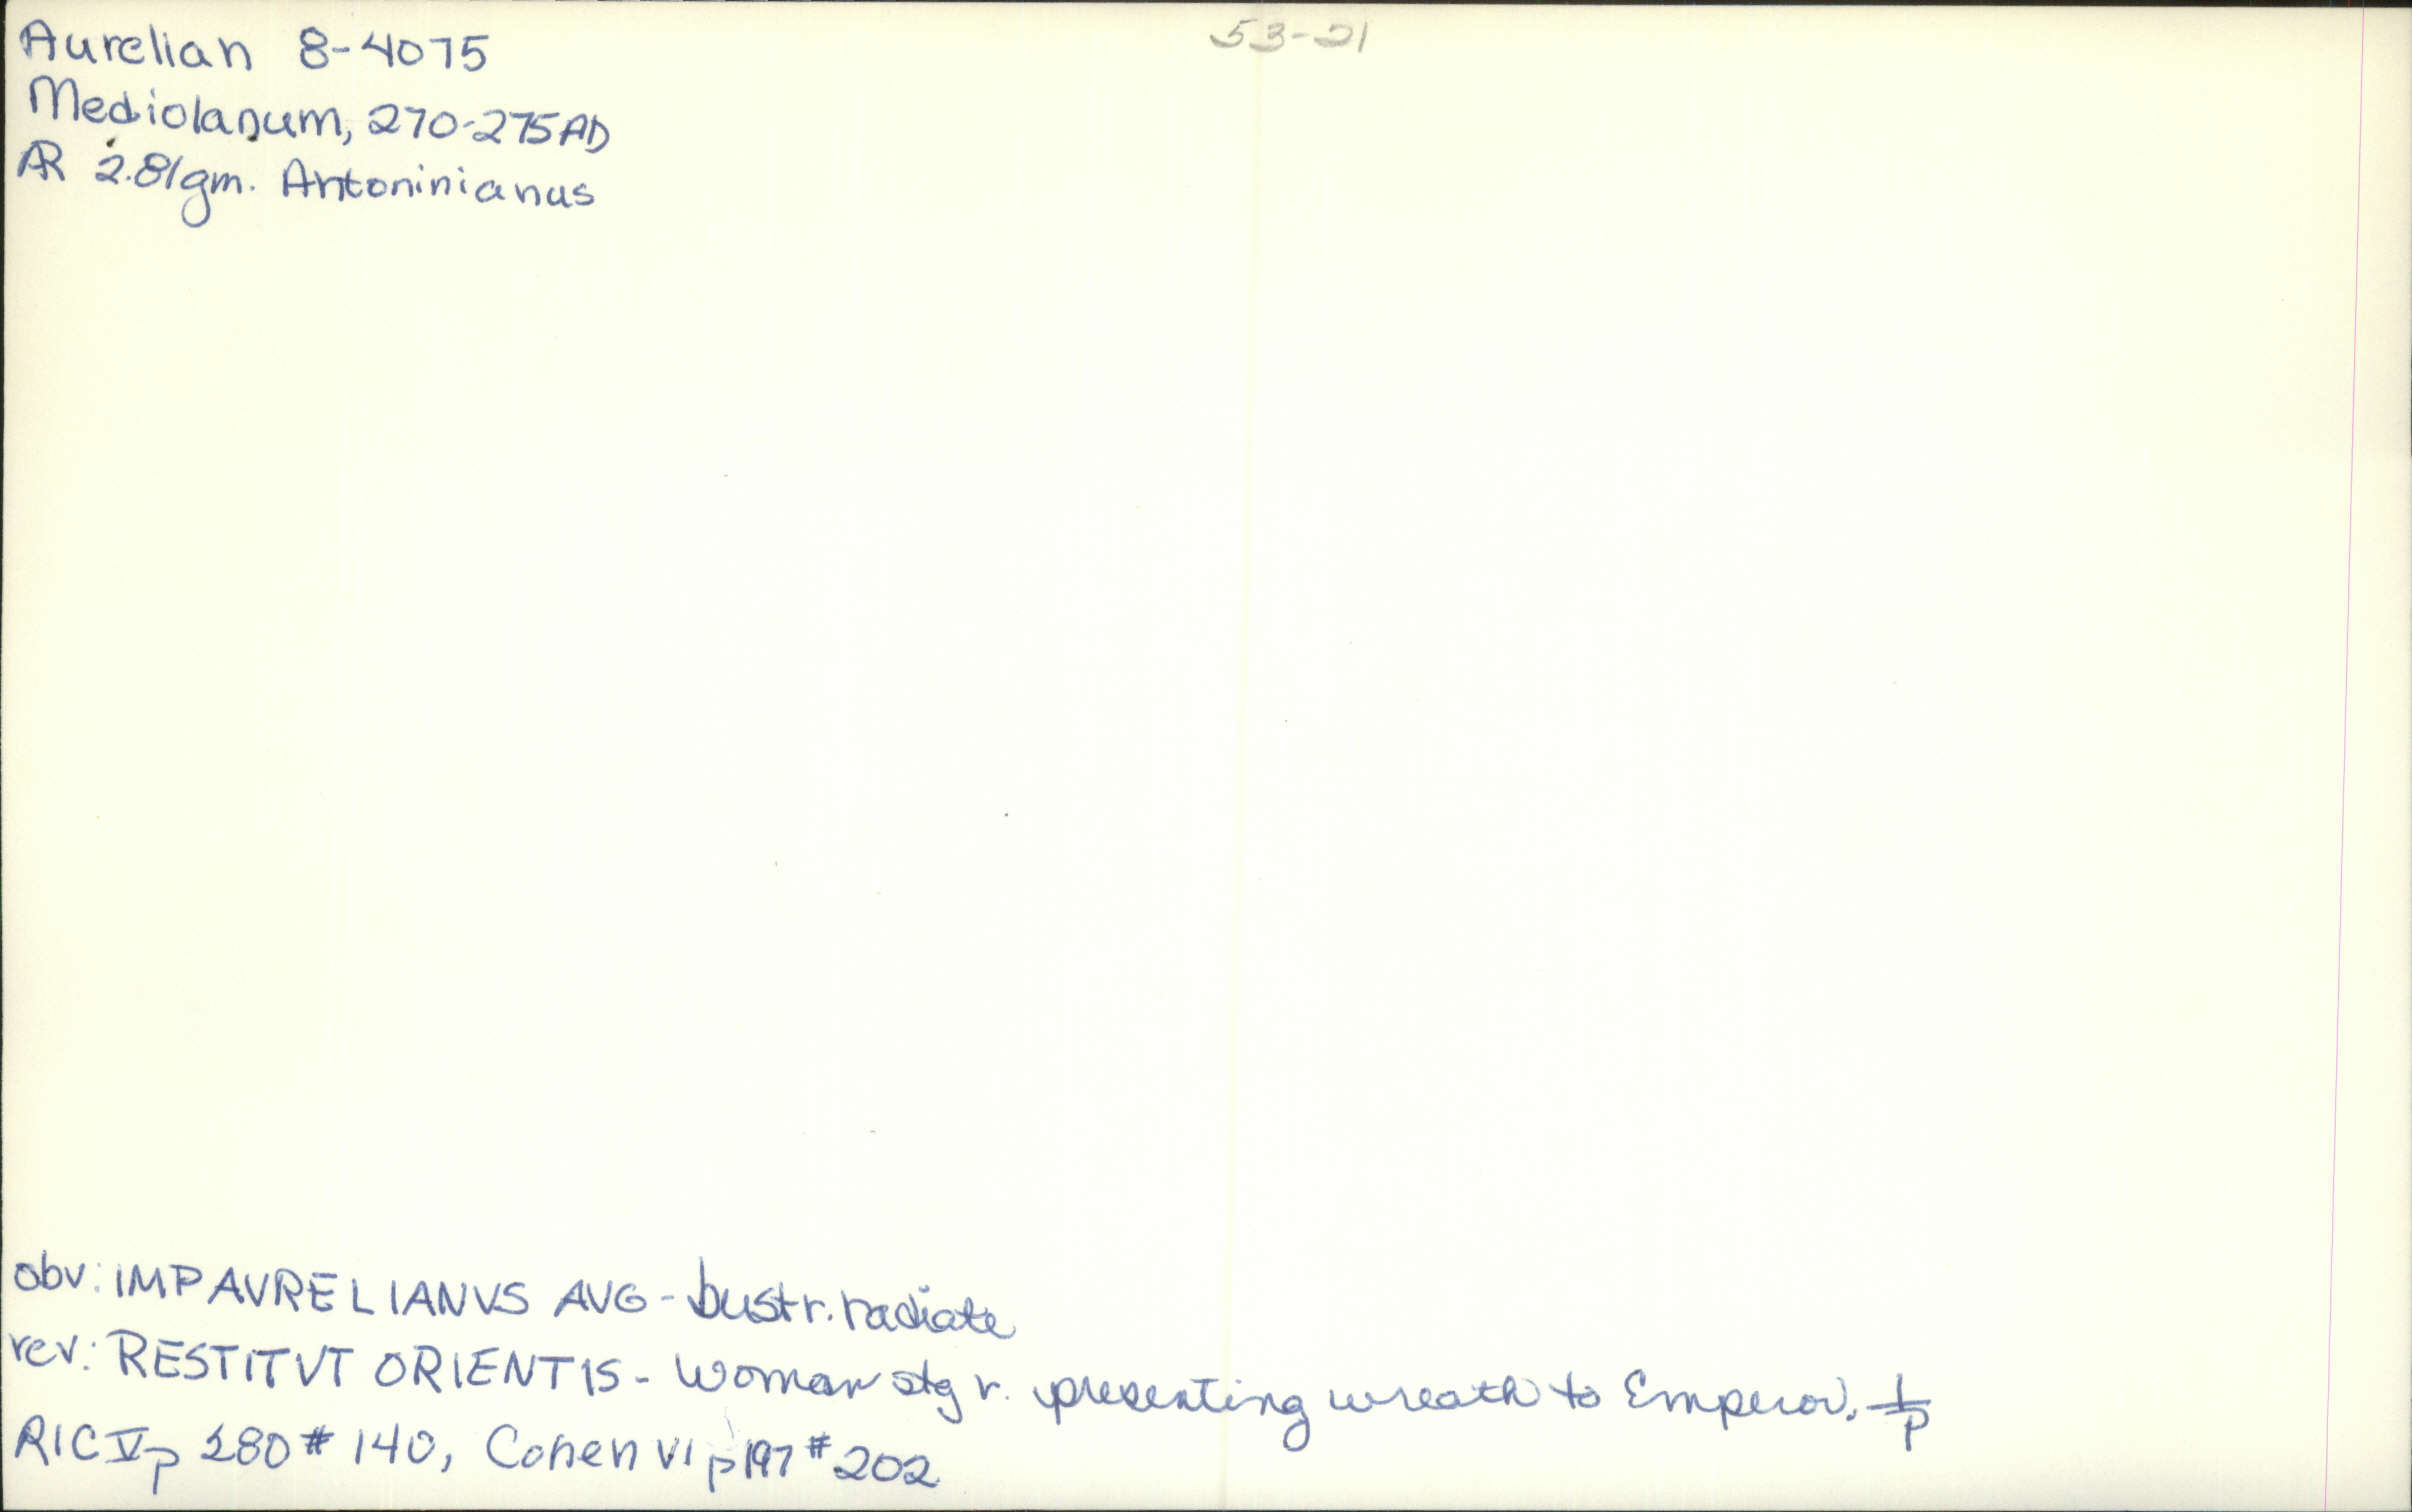 Aurelian 8-4075
53-21
Mediolanum, 270-275AD
AR 2.81gm. Antoninianus
obv: IMP AVRELIANVS AVG - bust r. radiate
rev: RESTITVT ORIENTIS - Woman stg r. presenting wreath to Emperor. ⊥/P
RIC V p 280 # 140, Cohen VI p 197 # 202